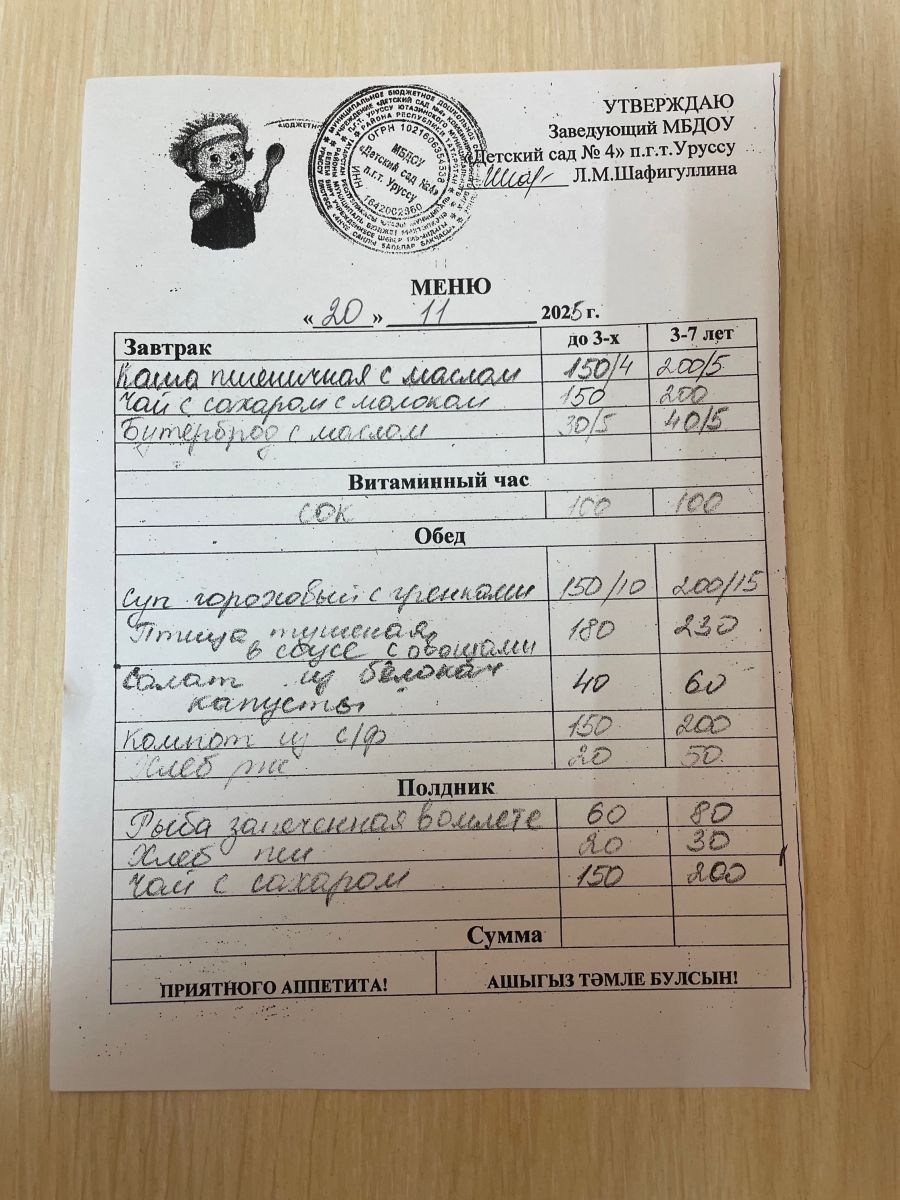 УТВЕРЖДАЮ
Заведующий МБДОУ
«Детский сад № 4» п.г.т.Уруссу
Л.М.Шафигуллина
ОГРН 1021606354338
МБДОУ
«Детский сад №4»
п.г.т. Уруссу
ИНН 1642002360
МЕНЮ
«20» 11 2025 г.
Завтрак до 3-х 3-7 лет
Каша пшеничная с маслом 150/4 200/5
Чай с сахаром с молоком 150 200
Бутерброд с маслом 30/5 40/5
Витаминный час
сок 100 100
Обед
Суп гороховый с гренками 150/10 200/15
Птица тушеная 180 230
в соусе с овощами
Салат из белокач 40 60
капусты
Компот из с/ф 150 200
Хлеб рж 20 50
Полдник
Рыба запеченная в омлете 60 80
Хлеб пш 20 30
Чай с сахаром 150 200
Сумма
ПРИЯТНОГО АППЕТИТА! АШЫГЫЗ ТӘМЛЕ БУЛСЫН!